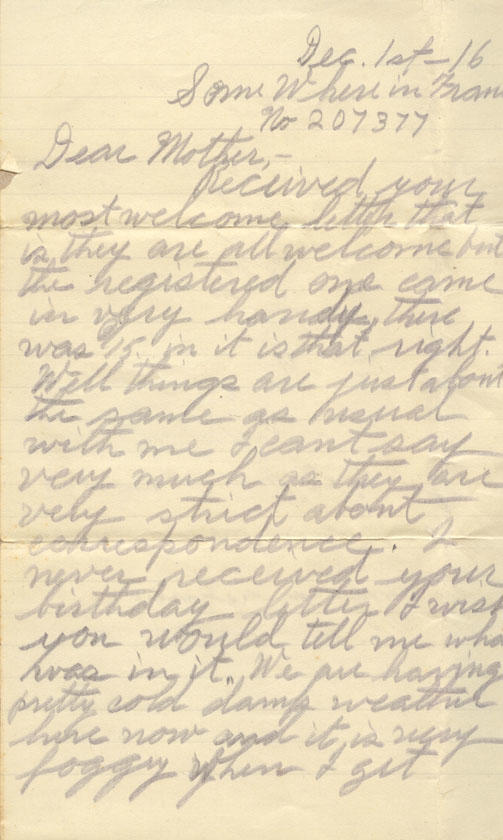 Dec. 1st-16
Some Where in Fran
No 207377
Dear Mother,-
Received your
most welcome letter that
is, they are all welcome but
the registered one came
in very handy, there
was $5 in it is that right.
Well things are just about
the same as usual
with me I cant say
very much as they are
very strict about
correspondence. I
never received your
birthday letter I wish
you would tell me wha
was in it. We are having
pretty cold damp weather
here now and it is very
foggy when I get